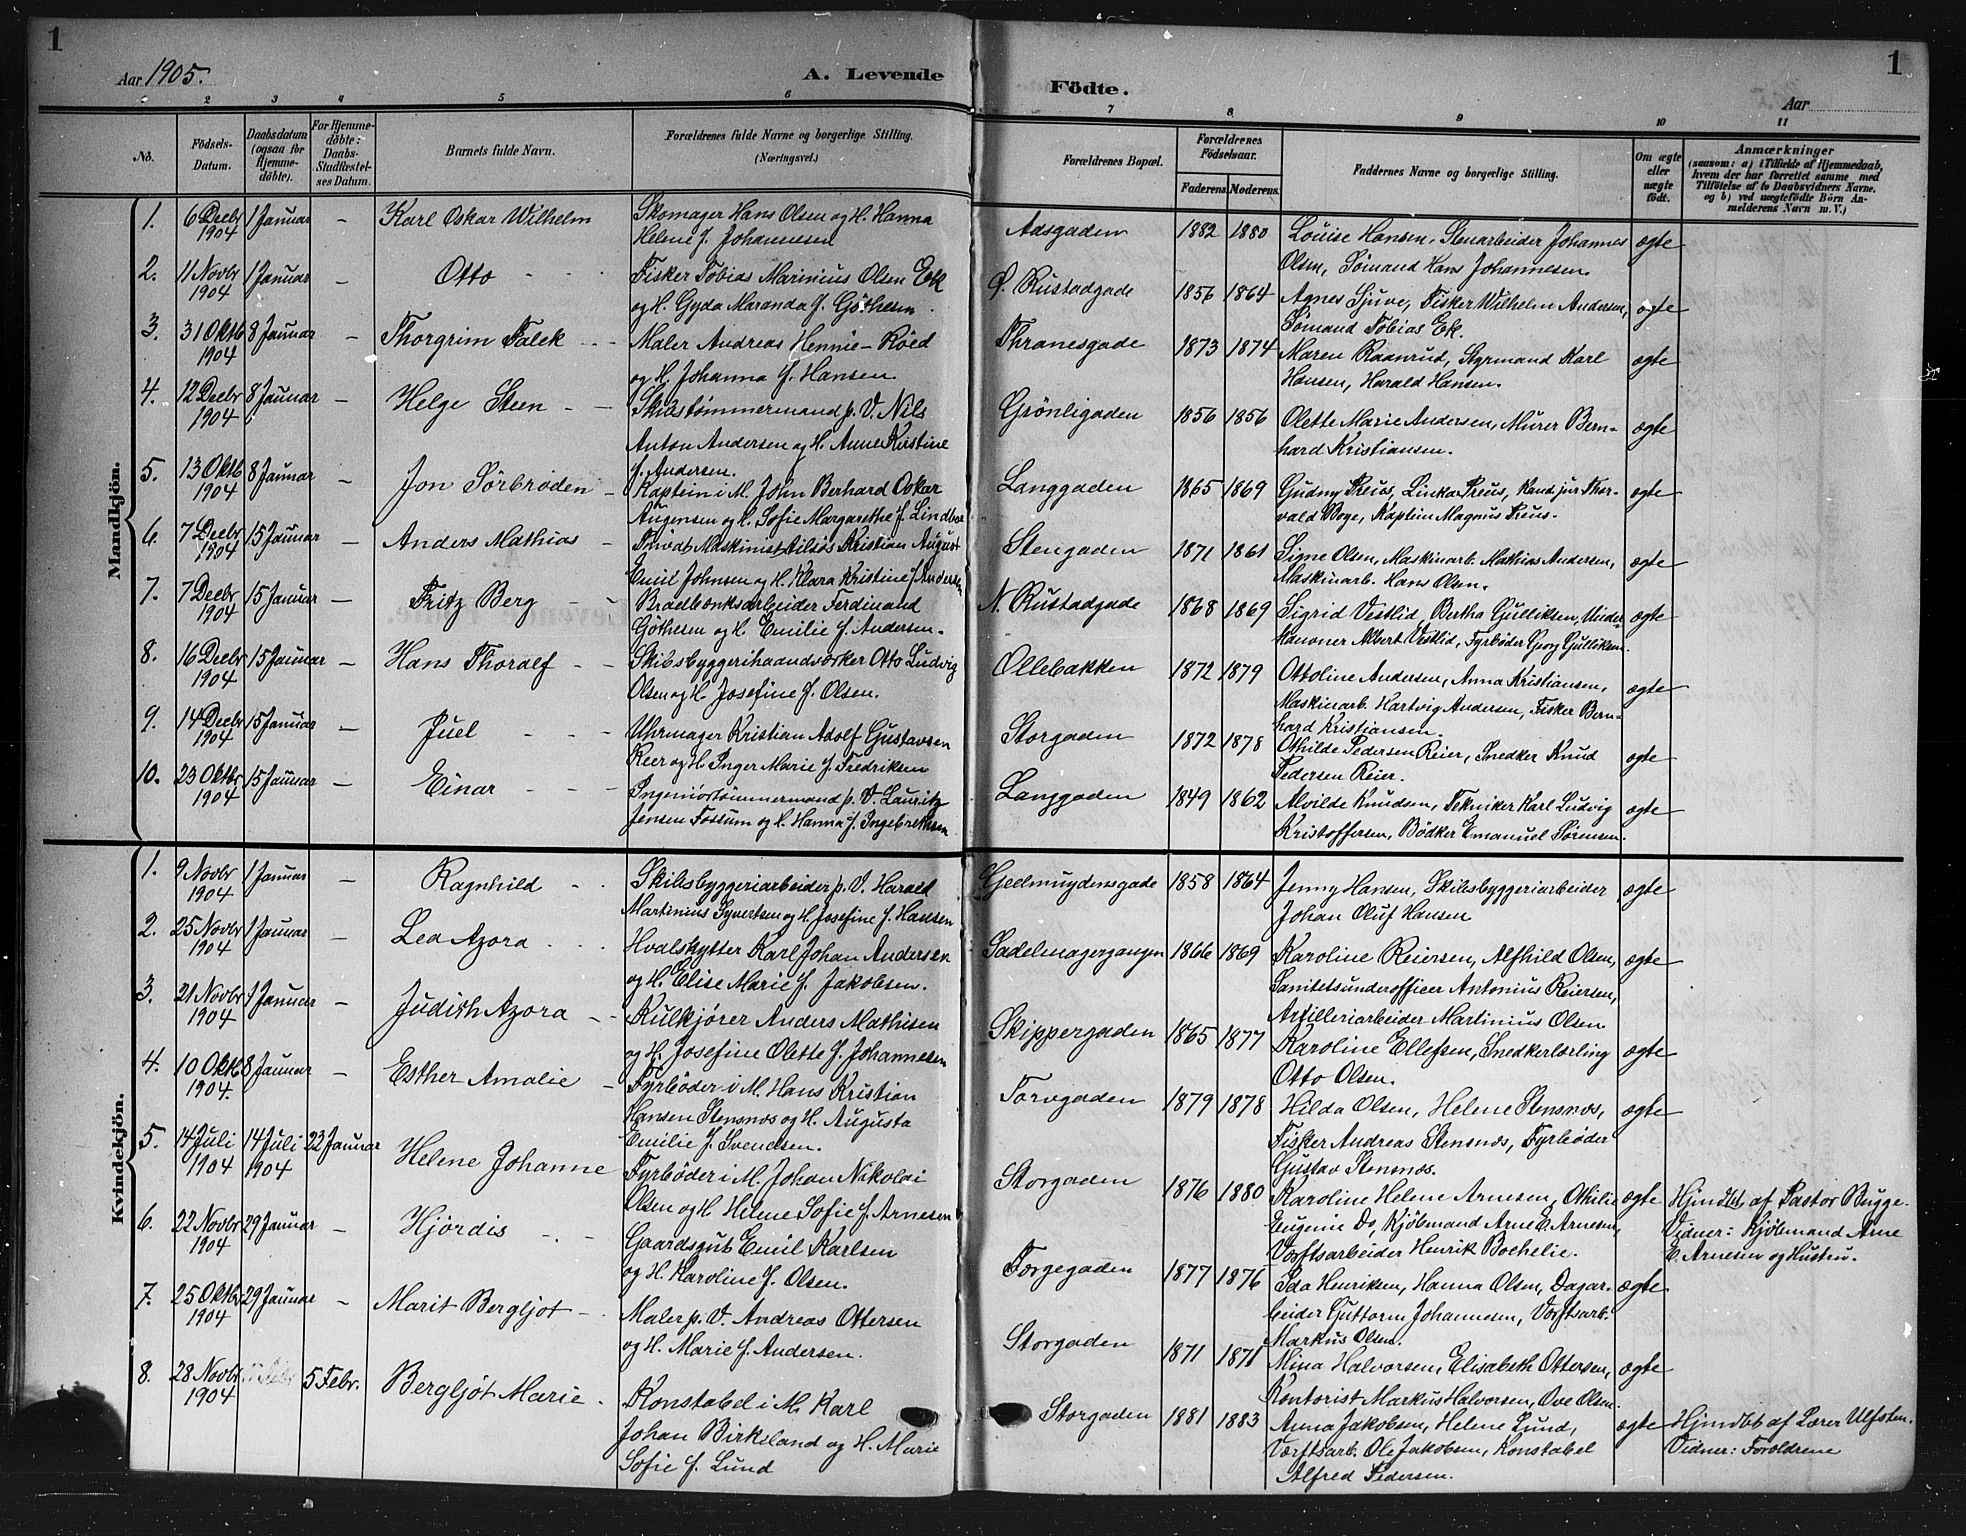 1
Aar 1905.
A. Levende
Födte.
Aar
1
1 2 3 4 5 6 7 8 9 10 11
No.
Födsels-
Datum.
Daabsdatum
(ogsaa for
Hjemme-
döbte).
For Hjemme-
döbte:
Daabs-
Stadfæstel-
ses Datum.
Barnets fulde Navn.
Forældrenes fulde Navne og borgerlige Stilling.
(Næringsvei.)
Forældrenes Bopæl.
Forældrenes
Födselsaar.
Faderens. Moderens.
Faddernes Navne og borgerlige Stilling.
Om ægte
eller
uægte
födt.
Anmærkninger
(saasom: a) i Tilfælde af Hjemmedaab,
hvem der har forrettet samme med
Tilföielse af to Daabsvidners Navne.
og b) ved uægtefödte Börn An-
melderens Navn m. V.)
Mandkjön.
1. 6 Decbr 1904 1 Januar – Karl Oskar Wilhelm
Skomager Hans Olsen og H. Hanna
Helene f. Johannesen
Aasgaden 1882 1880
Louise Hansen, Stenarbeider Johannes
Olsen, Sømand Hans Johannesen.
ægte
2. 11 Novbr 1904 1 Januar – Otto
Fisker Tobias Marinius Olsen Ek
og H. Gyda Maranda f. Gøthesen
Ø. Rustadgade 1856 1864
Agnes Sjuve, Fisker Wilhelm Andersen,
Sømand Tobias Ek.
ægte
3. 31 Oktb 1904 8 Januar – Thorgrim Falck
Maler Andreas Hennie-Røed
og H. Johanna f. Hansen.
Thranesgade 1873 1874
Maren Raanrud, Styrmand Karl
Hansen, Harald Hansen.
ægte
4. 12 Decbr 1904 8 Januar – Helge Steen
Skibstømmermand p. V. Nils
Anton Andersen og H. Anne Kristine
f. Andersen.
Grønligaden 1856 1856
Olette Marie Andersen, Murer Bern-
hard Kristiansen.
ægte
5. 13 Oktb 1904 8 Januar – Jon Sørbrøden
Kaptein i M. John Berhard Oskar
Augensen og H. Sofie Margarethe f. Lindboe
Langgaden 1865 1869
Gudny Preus, Linka Preus, Kand. jur. Thor-
vald Boye, Kaptein Magnus Preus.
ægte
6. 7 Decbr 1904 15 Januar – Anders Mathias
Maskinist Kristian August
Emil Johnsen og H. Klara Kristine f. Andersen
Stengaden 1871 1861
Signe Olsen, Maskinarb. Mathias Andersen,
Maskinarb. Hans Olsen.
ægte
7. 7 Decbr 1904 15 Januar – Fritz Berg
Bradbænksarbeider Ferdinand
Gøthesen og H. Emilie f. Andersen.
N. Rustadgade 1868 1869
Sigrid Vestlid, Bertha Gulliksen, Under-
kanoner Albert Vestlid, Fyrbøder Georg Gulliksen.
ægte
8. 16 Decbr 1904 15 Januar – Hans Thoralf
Skibsbyggerihaandværker Otto Ludvig
Olsen og H. Josefine f. Olsen.
Ollebakken 1872 1879
Ottoline Andersen, Anna Kristiansen,
Maskinarb. Hartvig Andersen, Fisker Bern-
hard Kristiansen.
ægte
9. 14 Decbr 1904 15 Januar – Juel
Uhrmager Kristian Adolf Gustavsen
Reer og H. Inger Marie f. Fredriksen
Storgaden 1872 1878
Othilde Pedersen Reier, Snedker Knud
Pedersen Reier.
ægte
10. 23 Oktbr 1904 15 Januar – Einar
Ingeniørtømmermand p. V. Lauritz
Jensen Fossum og H. Hanna f. Ingebrethsen
Langgaden 1849 1862
Alvilde Knudsen, Tekniker Karl Ludvig
Kristoffersen, Bødker Emanuel Sørensen.
ægte
Kvindekjön.
1. 9 Novbr 1904 1 Januar – Ragnhild
Skibsbyggeriarbeider p. V. Harald
Martinius Syvertsen og H. Josefine f. Hansen
Geelmuydensgade 1858 1864
Jenny Hansen, Skibsbyggeriarbeider
Johan Oluf Hansen
ægte
2. 25 Novbr 1904 1 Januar – Lea Azora
Hvalskytter Karl Johan Andersen
og H. Elise Marie f. Jakobsen.
Sadelmagergangen 1866 1869
Karoline Reiersen, Alfhild Olsen,
Sanitetsunderofficer Antonius Reiersen,
Artilleriarbeider Martinius Olsen
ægte
3. 21 Novbr 1904 1 Januar – Judith Azora
Kulkjører Anders Mathisen
og H. Josefine Olette f. Johannesen
Skippergaden 1865 1877
Karoline Ellefsen, Snedkerlærling
Otto Olsen.
ægte
4. 10 Oktb 1904. 8 Januar – Esther Amalie
Fyrbøder i M. Hans Kristian
Hansen Stensnæs og H. Augusta
Emilie f. Svendsen.
Torvgaden 1879 1878
Hilda Olsen, Helene Stensnæs,
Fisker Andreas Stensnæs, Fyrbøder
Gustav Stensnæs.
ægte
5. 14 Juli 1904 14 Juli 1904 22 Januar Helene Johanne
Fyrbøder i M. Johan Nikolai
Olsen og H. Helene Sofie f. Arnesen
Storgaden 1876 1880
Karoline Helene Arnesen, Othilie
Eugenie Do, Kjøbmand Arne E. Arnesen,
Værftsarbeider Henrik Bochelie.
ægte
Hjmdbt. af Pastor Bugge.
Vidner: Kjøbmand Arne
E. Arnesen og Hustru.
6. 22 Novbr 1904 29 Januar – Hjørdis
Gaardsgut Emil Karlsen
og H. Karoline f. Olsen.
Færgegaden 1877 1876
Ida Henriksen, Hanna Olsen, Dagar-
beider Guttorm Johannesen, Værftsarb.
Markus Olsen.
ægte
7. 25 Oktbr 1904 29 Januar – Marit Bergljot
Maler p. V. Andreas Ottersen
og H. Marie f. Andersen.
Storgaden 1871 1871
Mina Halvorsen, Elisabeth Ottersen,
Kontorist Markus Halvorsen, Ove Olsen.
ægte
8. 28 Novbr 1904 5 Febr. Bergljot Marie
Konstabel i M. Karl
Johan Birkeland og H. Marie
Sofie f. Lund
Storgaden 1881 1883
Anna Jakobsen, Helene Lund,
Værftsarb. Ole Jakobsen, Konstabel
Alfred Pedersen.
ægte
Hjmdbt af Lærer Ulfsten.
Vidner: Forældrene